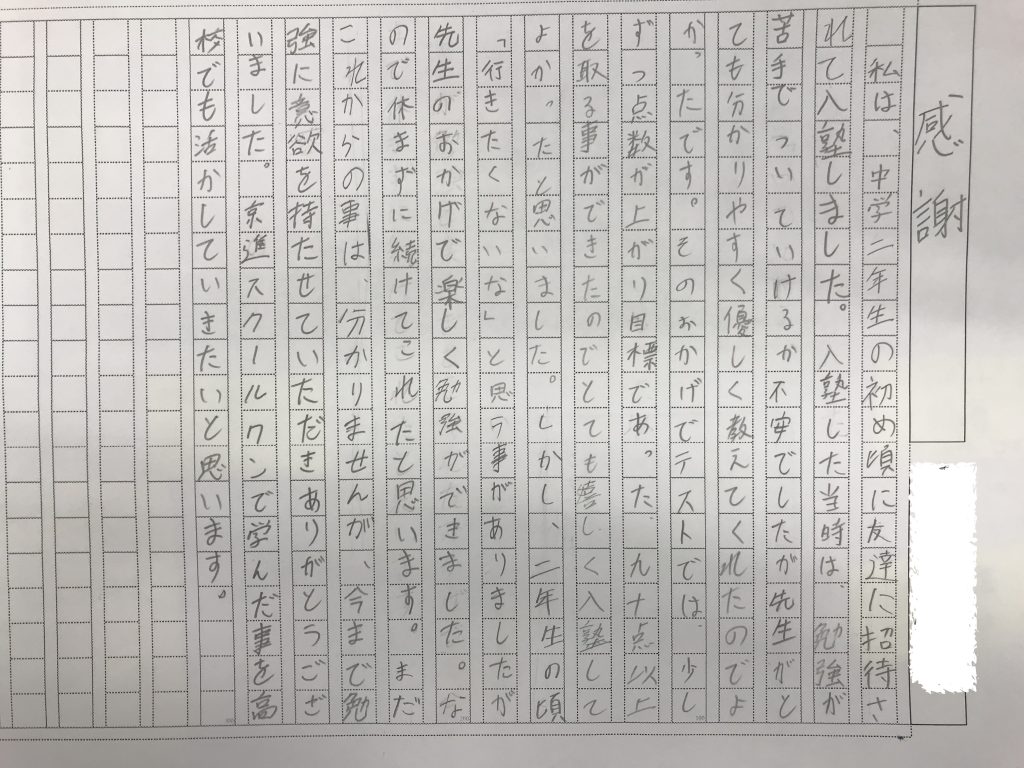 感謝
私は、中学二年生の初め頃に友達に招待さ
れて入塾しました。入塾した当時は、勉強が
苦手でついていけるか不安でしたが先生がと
ても分かりやすく優しく教えてくれたのでよ
かったです。そのおかげでテストでは、少し
ずつ点数が上がり目標であった、九十点以上
を取る事ができたのでとても嬉しく入塾して
よかったと思いました。しかし、二年生の頃
「行きたくないな」と思う事がありましたが
先生のおかげで楽しく勉強ができました。な
ので休まずに続けてこれたと思います。まだ
これからの事は、分かりませんが、今まで勉
強に意欲を持たせていただきありがとうござ
いました。京進スクールワンで学んだ事を高
校でも活かしていきたいと思います。